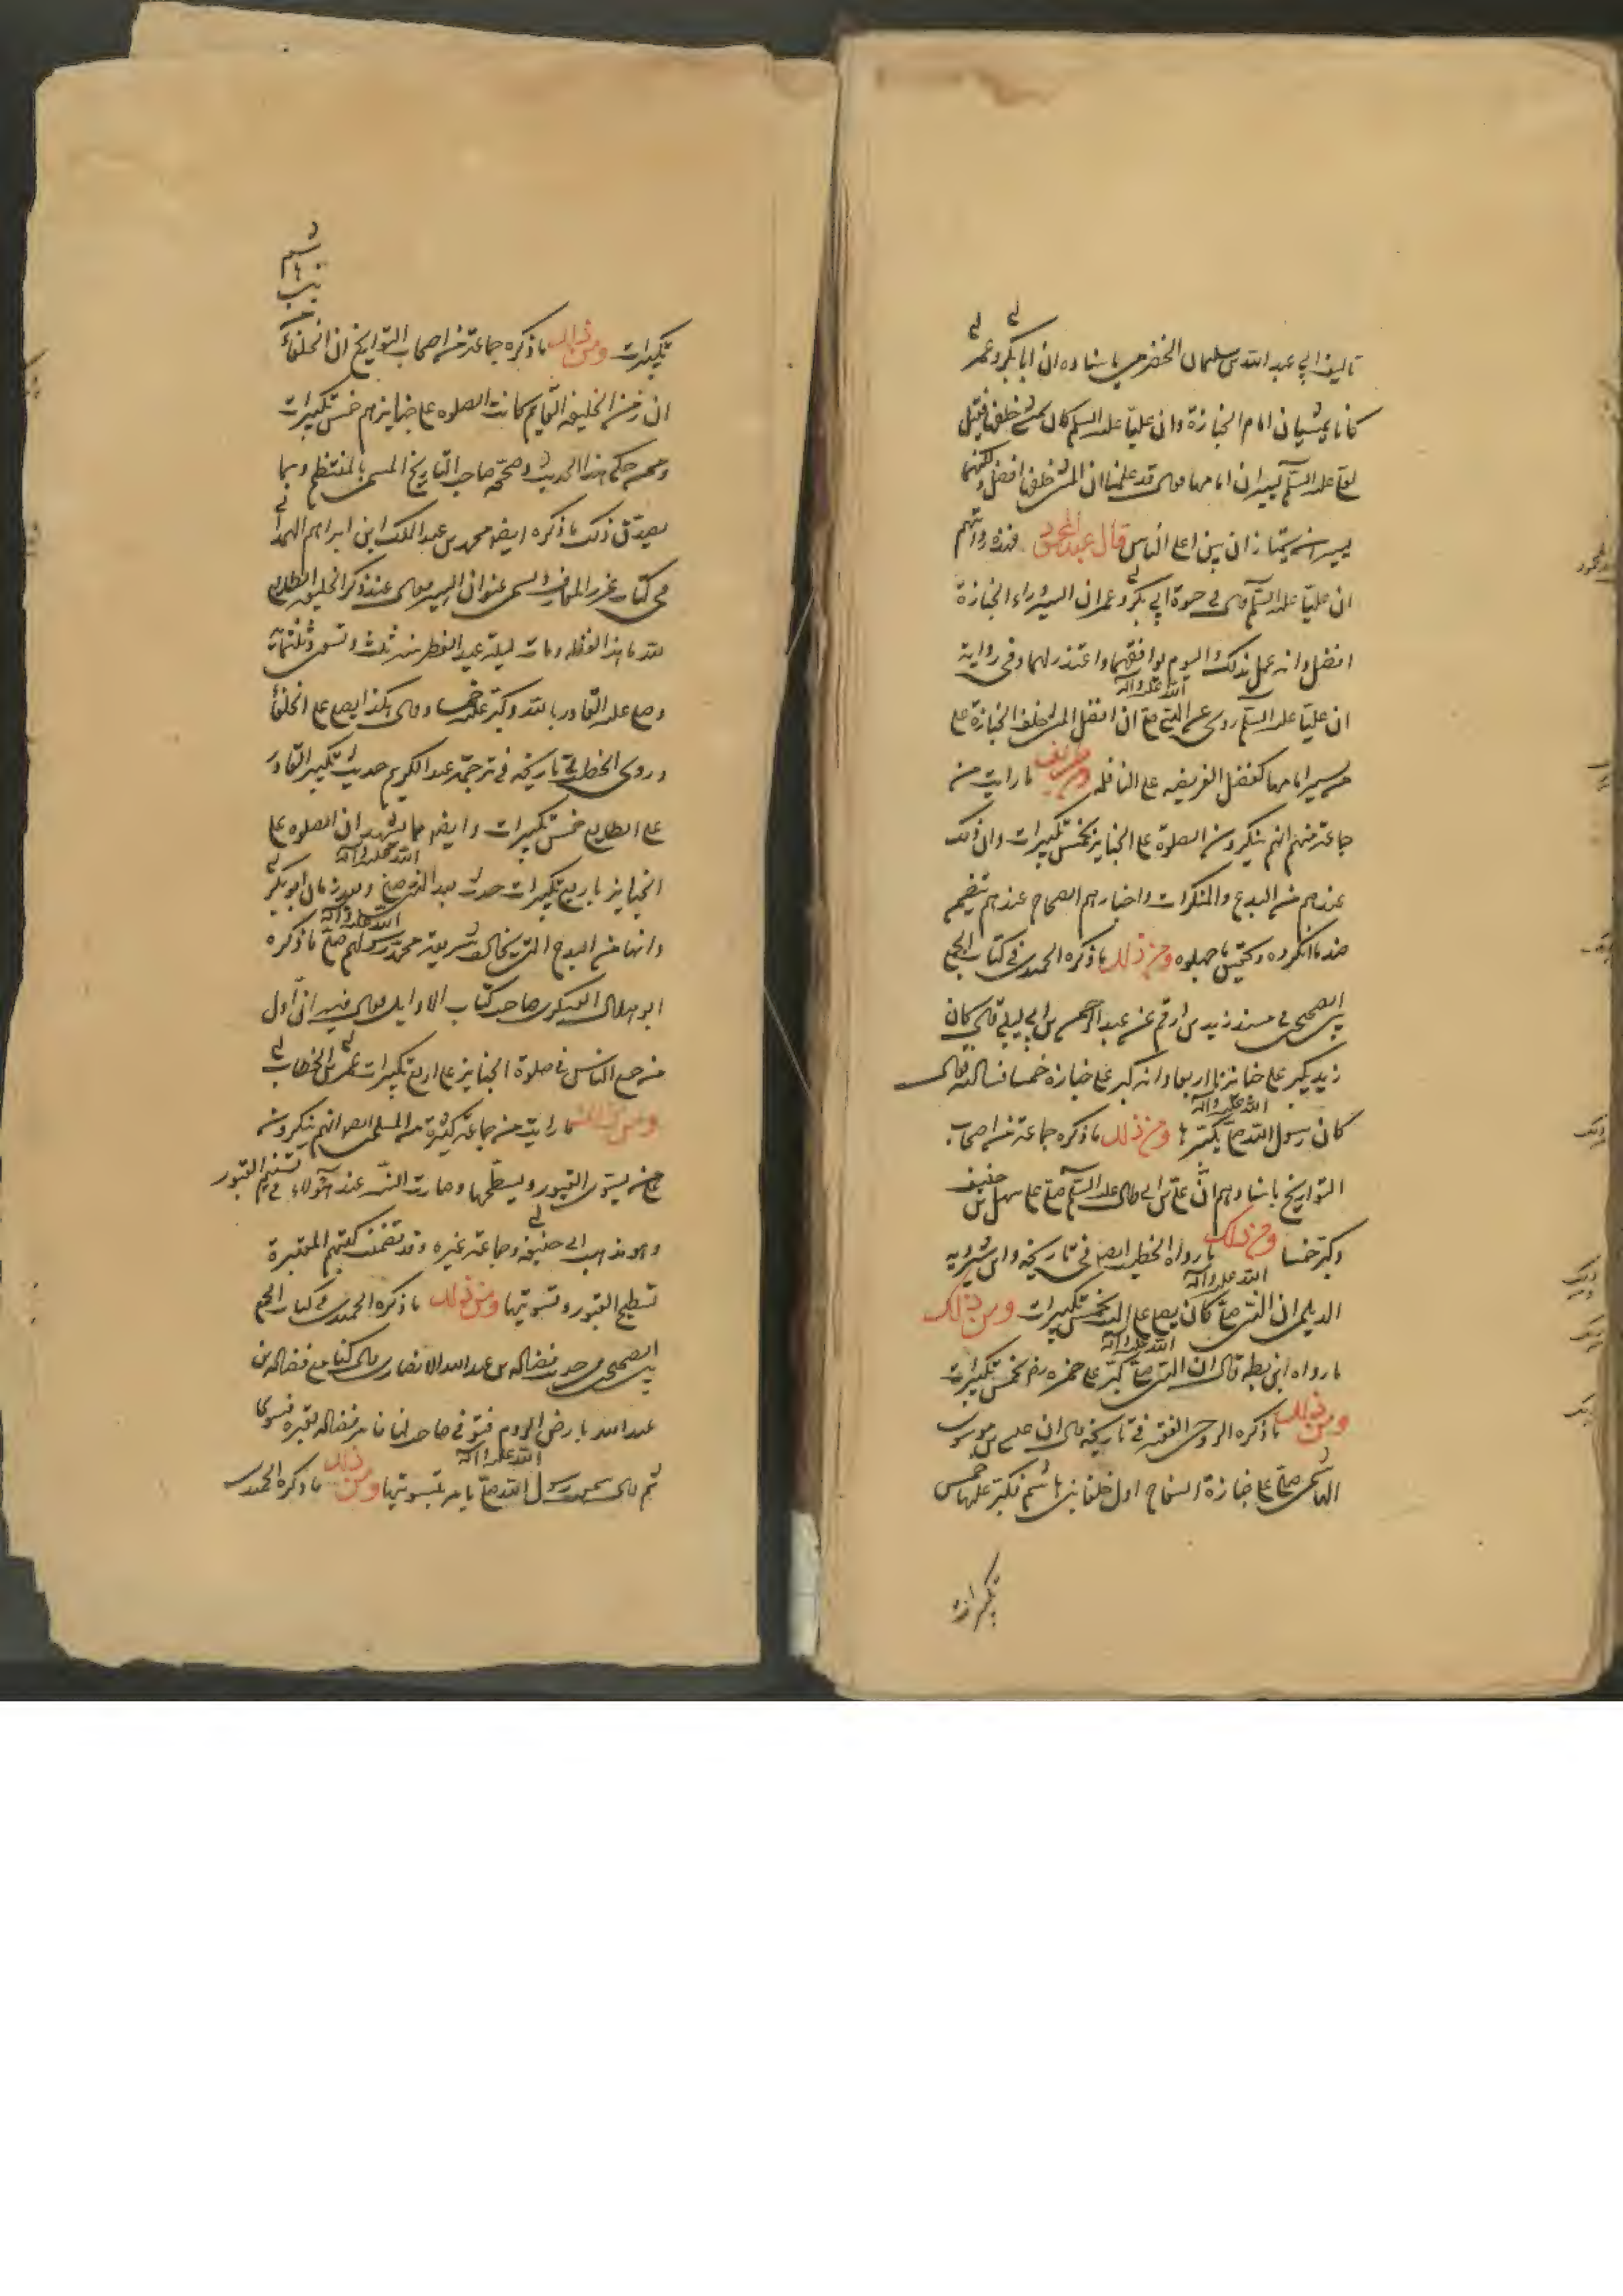 تاليف ابي عبد الله بن سليمان الحضرمي باسناده ان ابا بكر وعمر
كانا يمشيان امام الجنازة وان عليا عليه السلم كان يمشي خلف فقيل
لعلي عليه السلم يسيران امامها فقال قد علمنا ان المشي خلفها افضل ولكنهما
يسيران يتيازان بين اعلى الناس قال عبد المحمود فهذه روايتهم
ان عليا عليه السلم قال في حيوة ابي بكر وعمر ان السير وراء الجنازة
افضل وانه عمل بذلك اليوم يوافقهما واعتذر لهما وفي رواية
ان عليا عليه السلم روى عن النبي صلى الله عليه وآله ان افضل المشي خلف الجنازة على
من يسير امامها كفضل الفريضه على النافله ومن طريف ما رايت من
جماعة منهم انهم ينكرون الصلوة على الجنايز بخمس تكبيرات وان ذلك
عندهم من البدع والمنكرات واخبارهم الصحاح عندهم يتضمن
ضد ما انكروه وتحقيق ما جهلوه ومن ذلك ما ذكره الحميدي في كتاب الجمع
بين الصحيحين في مسند زيد بن ارقم عن عبد الرحمن بن ابي ليلى قال كان
زيد يكبر على جنائزنا اربعا وانه كبر على جنازة خمسا فسالته فقال
كان رسول الله صلى الله عليه وآله يكبرها ومن ذلك ما ذكره جماعة من اصحاب
التواريخ باسنادهم ان علي بن ابي طالب عليه السلم صلى على سهل بن حنيف
وكبر خمسا ومن ذلك ما رواه الخطيب ايضا في تاريخه وابن شيرويه
الديلمي ان النبي صلى الله عليه وآله كان يصلي على الميت بخمس تكبيرات ومن ذلك
ما رواه ابن بطه قال ان النبي صلى الله عليه وآله كبر على حمزه رض بخمس تكبيرات
ومن ذلك ما ذكره الروحي الفقيه في تاريخه قال ان عيسى بن موسى
الهاشمي صلى على جنازة السفاح اول خلفا بني هاشم فكبر عليها خمس
تكبيرات
بني هاشم
تكبيرات ومن ذلك ما ذكره جماعة من اصحاب التواريخ ان الخلفاء
ان زمن الخليفه القايم كانت الصلوه على جنايزهم خمس تكبيرات
وممن حكى هذا الحديث وصححه صاحب التاريخ المسمى بالمنتظم ومما
يصدق ذلك ما ذكره ايضا محمد بن عبد الملك ابن ابراهيم الهمداني
في كتاب عنوان السير فقال عند ذكر الخليفه الطايع
لله ما هذا لفظه ومات ليلة عيد الفطر سنه ثلث وتسعين وثلثمائة
وصلى عليه القادر بالله وكبر عليه خمسا وقال هكذا يصلى على الخلفا
وروى الخطيب في تاريخه في ترجمة عبد الكريم حديث تكبير القادر
على الطايع خمس تكبيرات وايضا مما يشهد ان الصلوه على
الجنايز باربع تكبيرات حدث بعد النبي صلى الله عليه وآله وبعد زمان ابو بكر
وانها من البدع التي يخالف شريعة محمد رسولهم صلى الله عليه وآله ما ذكره
ابو هلال العسكري صاحب كتاب الاوايل قال فيه ان اول
من جمع الناس في صلوة الجنايز على اربع تكبيرات عمر بن الخطاب
ومن ذلك ما رايت من جماعة كثيرة من المسلمين ايضا انهم ينكرون
على من يسوى القبور ويسطحها وصارت السنه عند هؤلاء تسنيم القبور
وهو مذهب ابي حنيفه وجماعة غيره وقد تضمنت كتبهم المعتبرة
تسطيح القبور وتسويتها ومن ذلك ما ذكره الحميدي في كتاب الجمع
بين الصحيحين من حديث فضاله بن عبد الله الانصاري قال كنا مع فضاله بن
عبد الله بارض الروم فتوفي صاحب لنا فامر فضاله بقبره فسوى
ثم قال سمعت رسول الله صلى الله عليه وآله يامر بتسويتها ومن ذلك ما ذكره الحميدي